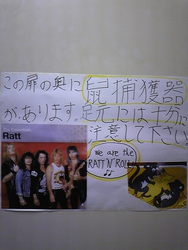 この扉の奥に鼠捕獲器
があります。足元には十分に
注意して下さい
Ratt
We are the
RATT'N'ROLL
♪♪